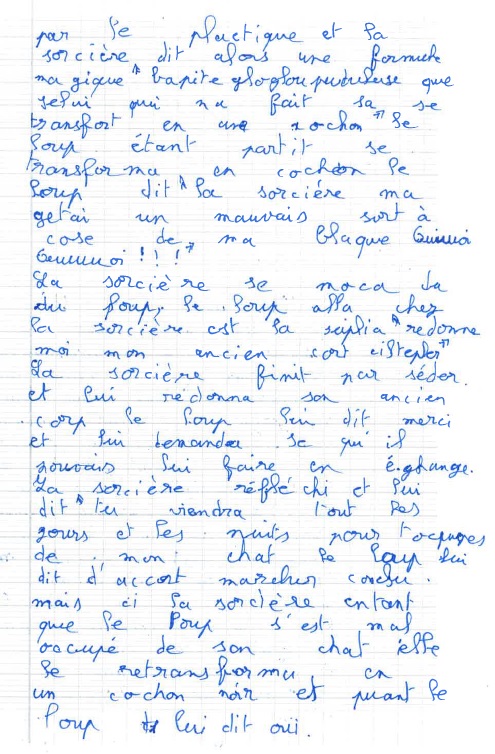 par le plactique et la
sorcière dit alors une formule
ma gique " bapite glogloupuduleuse que
selui qui na fait sa se
transfort en une cochon " le
loup étant partit se
transforma en cochon le
loup dit " la sorcière ma
getai un mauvais sort à
cose de ma blaque Guinoi
Geuuuuoi ! ! ! "
La sorcière se moca da
du loup, le loup alla chez
la sorcière est la suplia " redonne
moi mon ancien cort cistepler "
La sorcière finit par séder.
et lui redonna son ancien
corp le loup lui dit merci
et lui demanda se qu'il
pouvais lui faire en échange.
La sorcière réffléchi et lui
dit " tu viendra tout les
jours et les nuits pour t'ocupes
de mon chat le loup lui
dit d'accort marcher conclu.
mais ci la sorcière entant
que le loup s'est mal
occupé de son chat elle
le retransforma en
un cochon noir et puant le
loup lui dit oui.